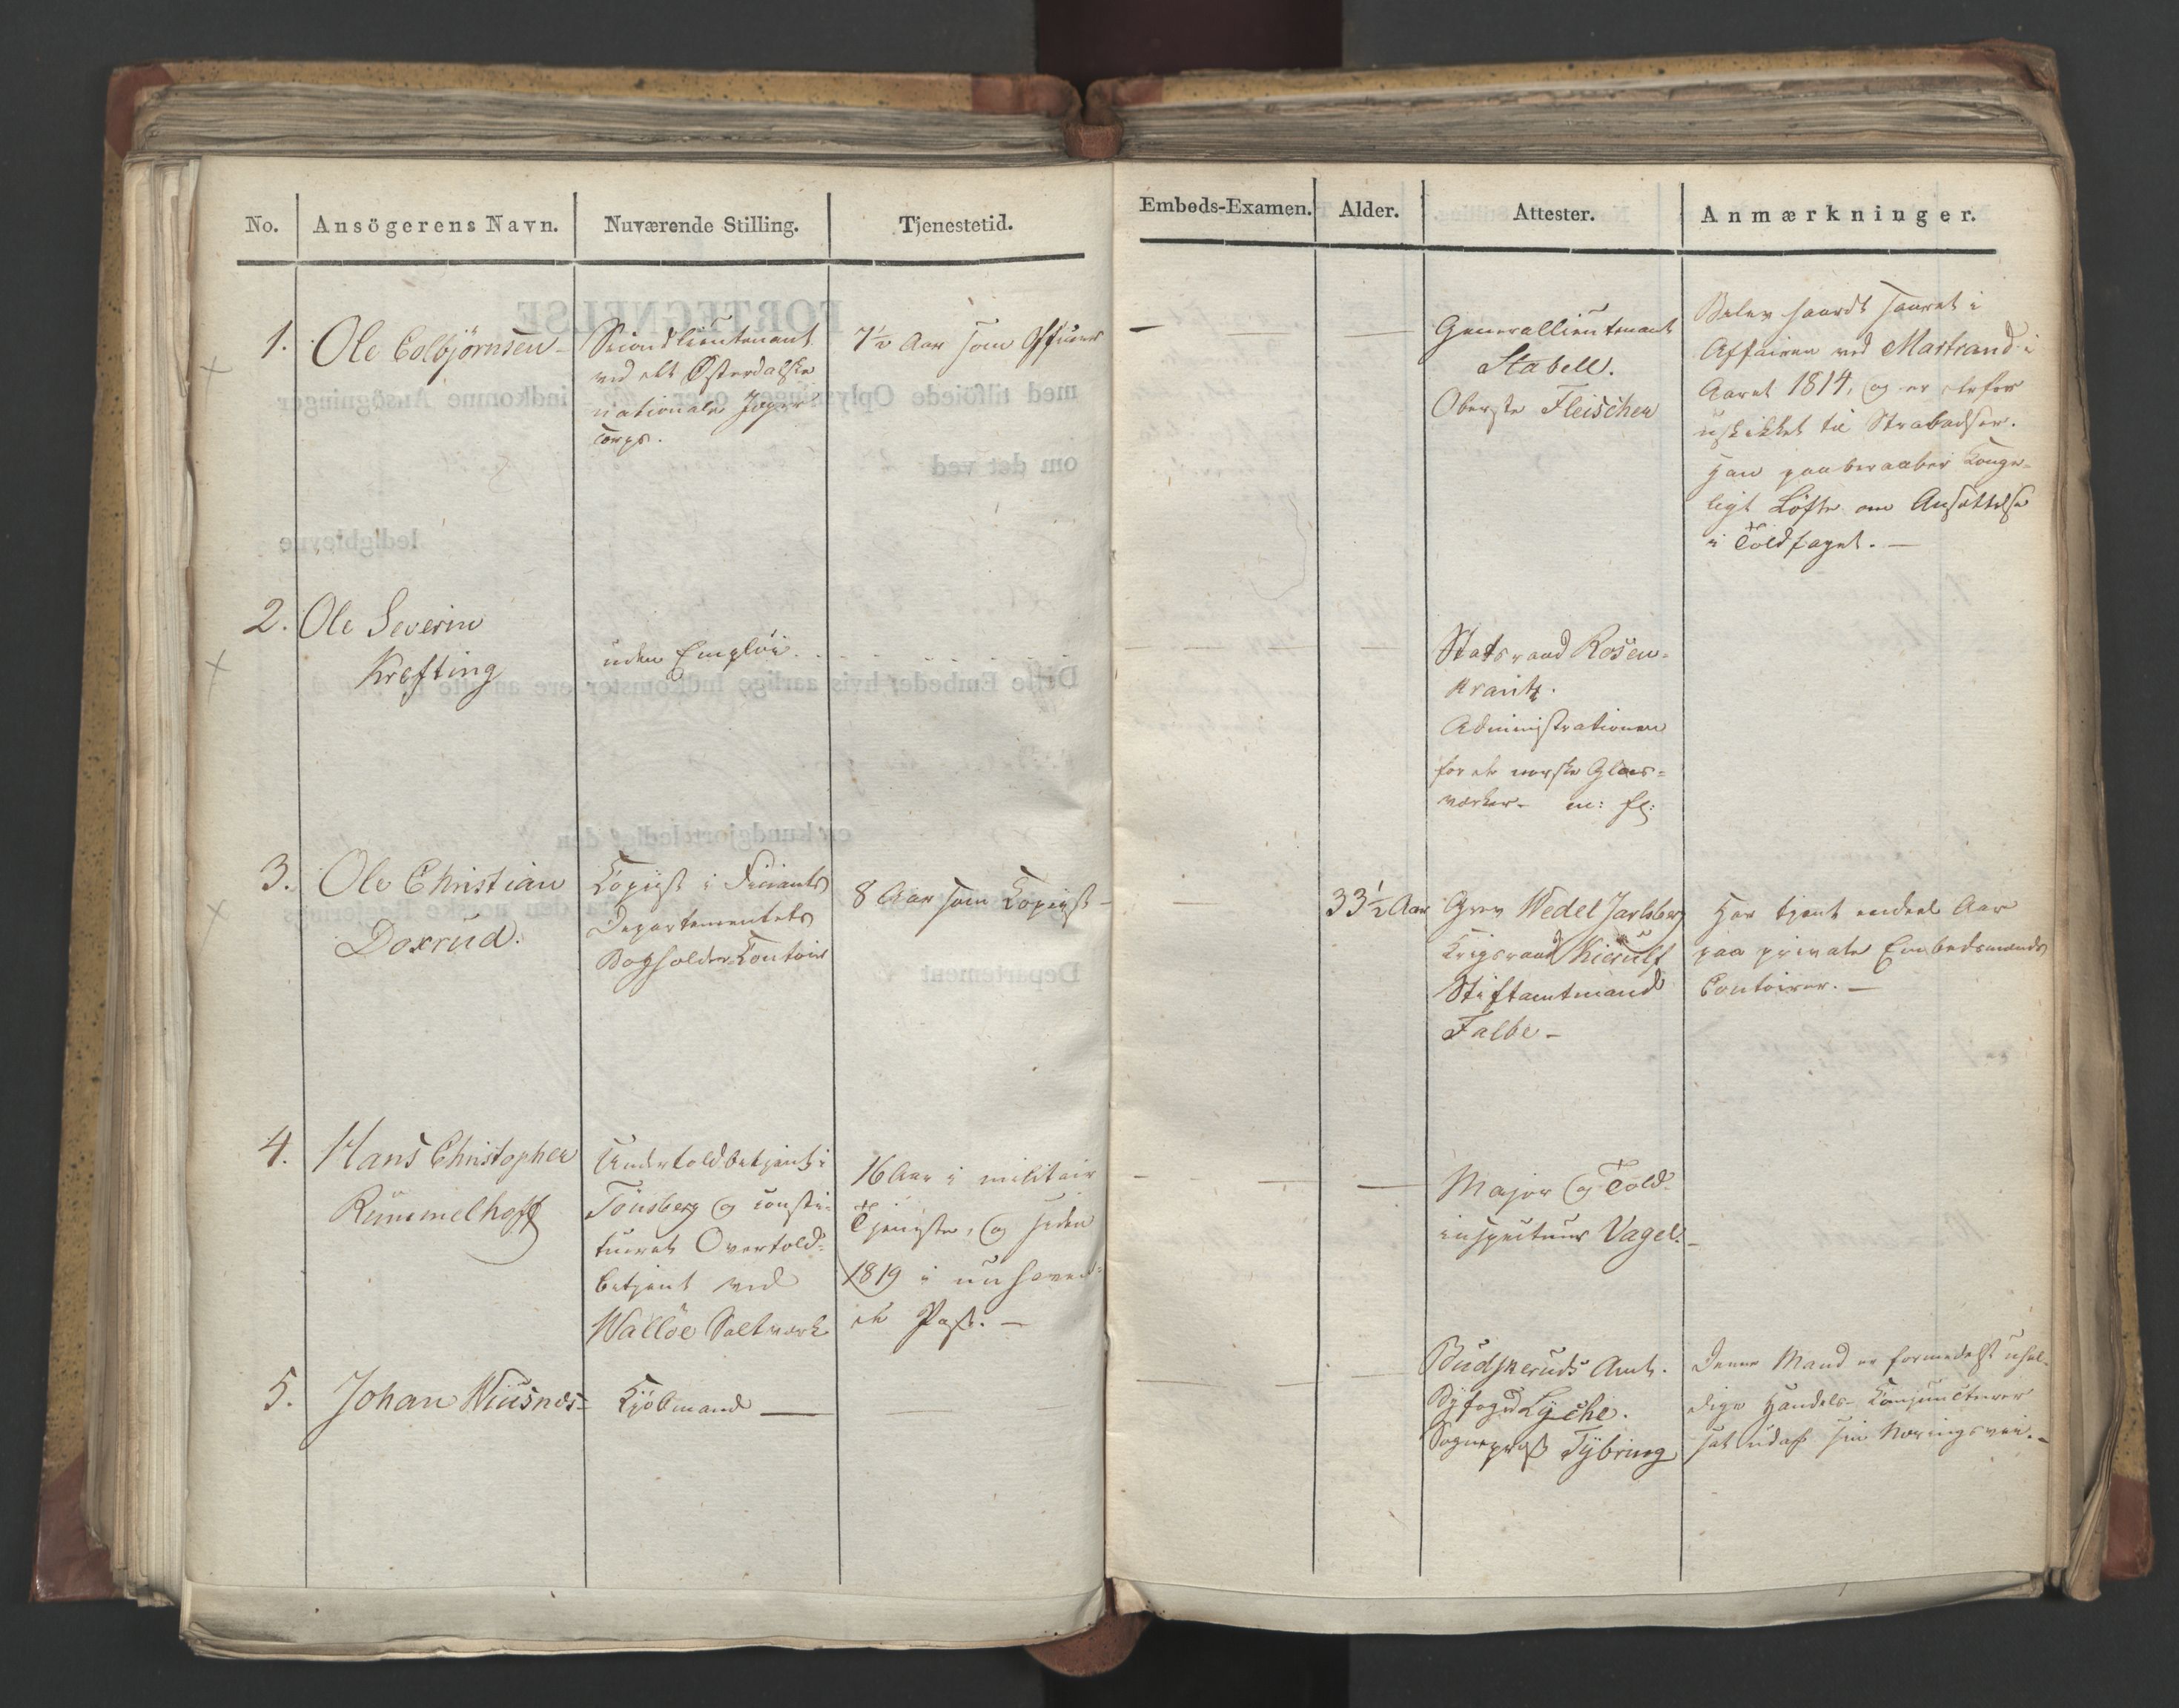 No.
Ansögerens Navn.
Nuværende Stilling.
Tjenestetid.
Embeds-Examen.
Alder.
Attester.
Anmærkninger.
1.
Ole Colbjörnsen
Secondlieutenant
ved det Østerdalske
nationale Jæger
Corps.
7½ Aar som Officeer
—
Generallieutenant
Stabell.
Oberste Fleischer
Blev haardt saaret i
Affairen ved Mastrand i
Aaret 1814, og er derfor
uskikket til Strabadser.
Han paaberaaber Konge-
ligt Löfte om Ansættelse
i Toldfaget. —
2.
Ole Severin
Krefting
uden Emploi
Statsraad Rosen-
krantz.
Administrationen
for de norske Glas-
værker. m: fl:
3.
Ole Christian
Doxrud.
Kopiist i Finants
Departementets
Bogholder-Contoir
8 Aar som Kopiist -
33½ Aar
Grev Wedel Jarlsberg
Krigsraad Kierulf
Stiftamtmand
Falbe -
Har tjent endeel Aar
paa private Embedsmænds
Contoirer. —
4.
Hans Christopher
Rummelhoff
Undertoldbetjent i
Tönsberg og consti-
tueret Overtold-
betjent ved
Walløe Saltværk
16 Aar i militair
Tjeneste, og siden
1819 i nu haven-
de Post. —
Major og Told-
inspecteur Vagel. -
5.
Johan Wiisnes -
Kjöbmand —
Budskeruds Amt.
Byfoged Lyche.
Sogneprest Tybring
Denne Mand er formedelst uhel-
dige Handels-Conjuncturer
sat ud af sin Næringsvei. -